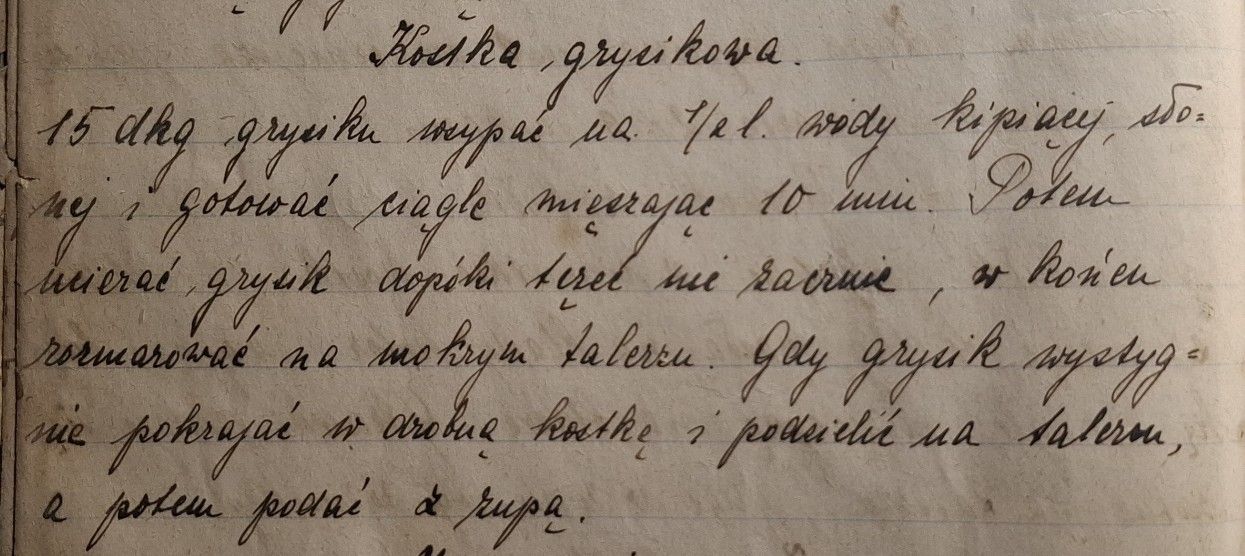 Kostka grysikowa.
15 dkg grysiku wsypać na 1/2 l. wody kipiącej, sło=
nej i gotować ciągle mięszając 10 min. Potem
ucierać grysik dopóki tężeć nie zacznie, w końcu
rozmarować na mokrym talerzu. Gdy grysik wystyg=
nie pokrajać w drobną kostkę i podzielić na talerzu,
a potem podać z zupą.